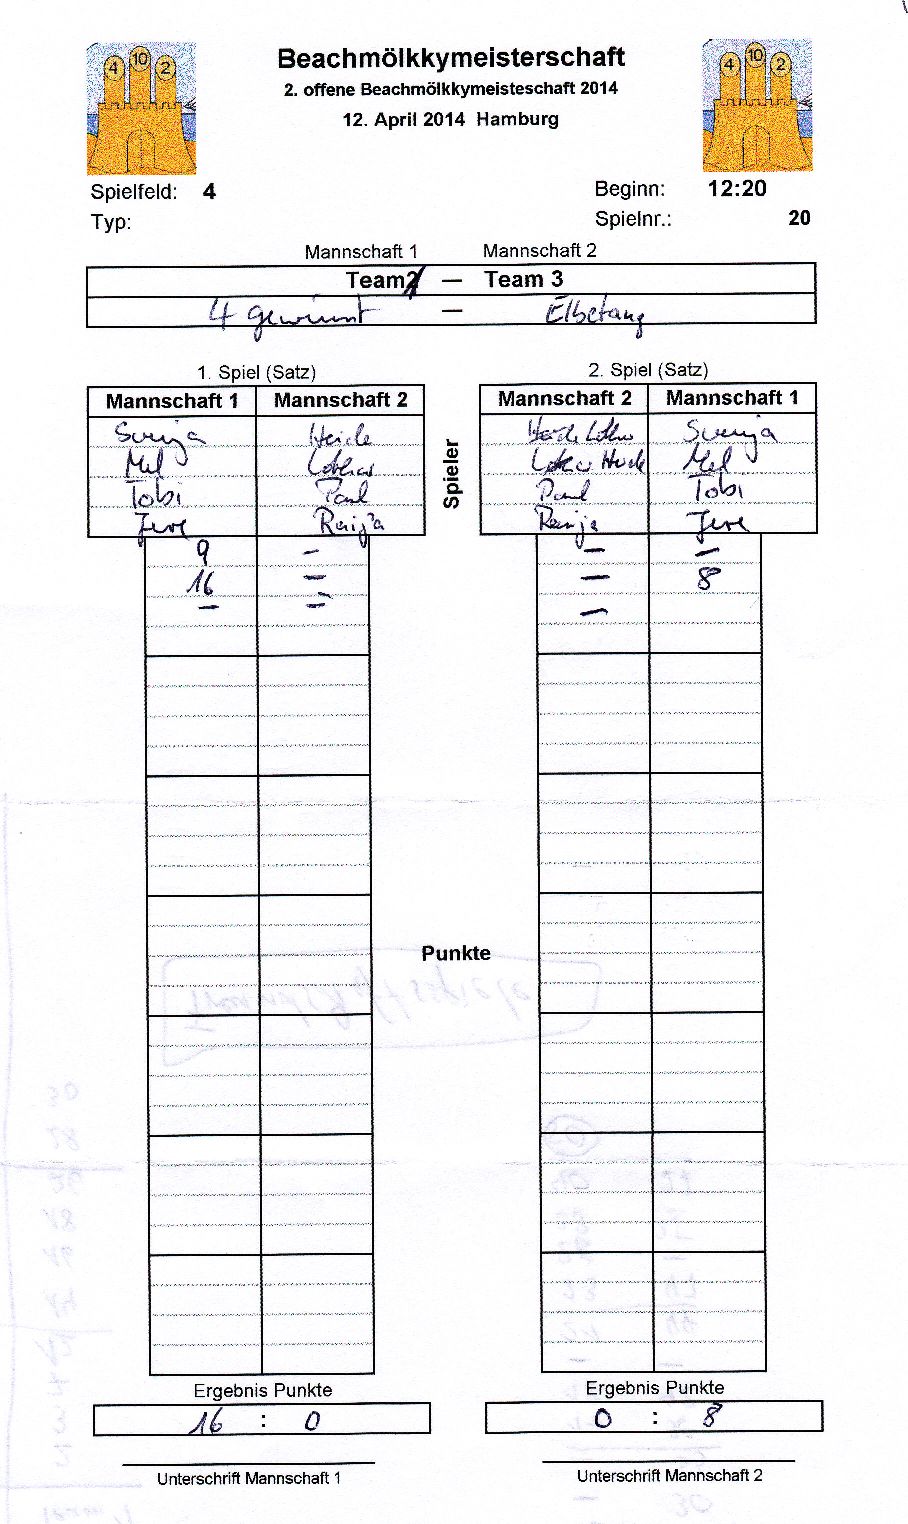 4 10 2
4 10 2
Beachmölkkymeisterschaft
2. offene Beachmölkkymeisteschaft 2014
12. April 2014 Hamburg
Spielfeld: 4
Beginn: 12:20
Typ:
Spielnr.: 20
Mannschaft 1 Mannschaft 2
Team — Team 3
4 gewinnt — Elbetang
1. Spiel (Satz) 2. Spiel (Satz)
Mannschaft 1 Mannschaft 2 Mannschaft 2 Mannschaft 1
Svenja Heide Svenja
Mel Lothar Mel
Tobi Paul Paul Tobi
Raija Raija
Spieler
9 – – –
16 – – 8
– – –
Punkte
Ergebnis Punkte Ergebnis Punkte
16 : 0 0 : 8
Unterschrift Mannschaft 1 Unterschrift Mannschaft 2